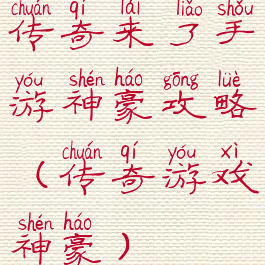 chuán qí lái liǎo shǒu
传奇来了手
yóu shén háo gōng lüè
游神豪攻略
chuán qí yóu xì
（传奇游戏
shén háo
神豪）